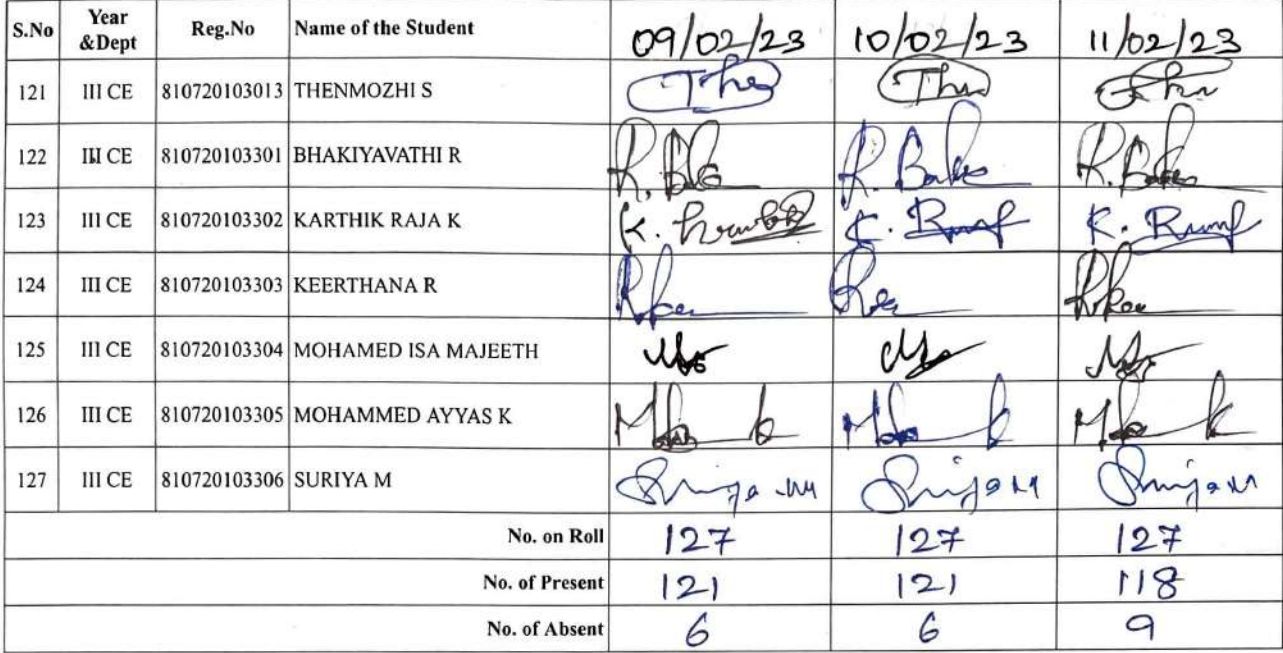 S.No Year &Dept Reg.No Name of the Student 09/02/23 10/02/23 11/02/23
121 III CE 810720103013 THENMOZHI S The Thn
122 III CE 810720103301 BHAKIYAVATHI R
123 III CE 810720103302 KARTHIK RAJA K
124 III CE 810720103303 KEERTHANA R
125 III CE 810720103304 MOHAMED ISA MAJEETH
126 III CE 810720103305 MOHAMMED AYYAS K
127 III CE 810720103306 SURIYA M
No. on Roll 127 127 127
No. of Present 121 121 118
No. of Absent 6 6 9